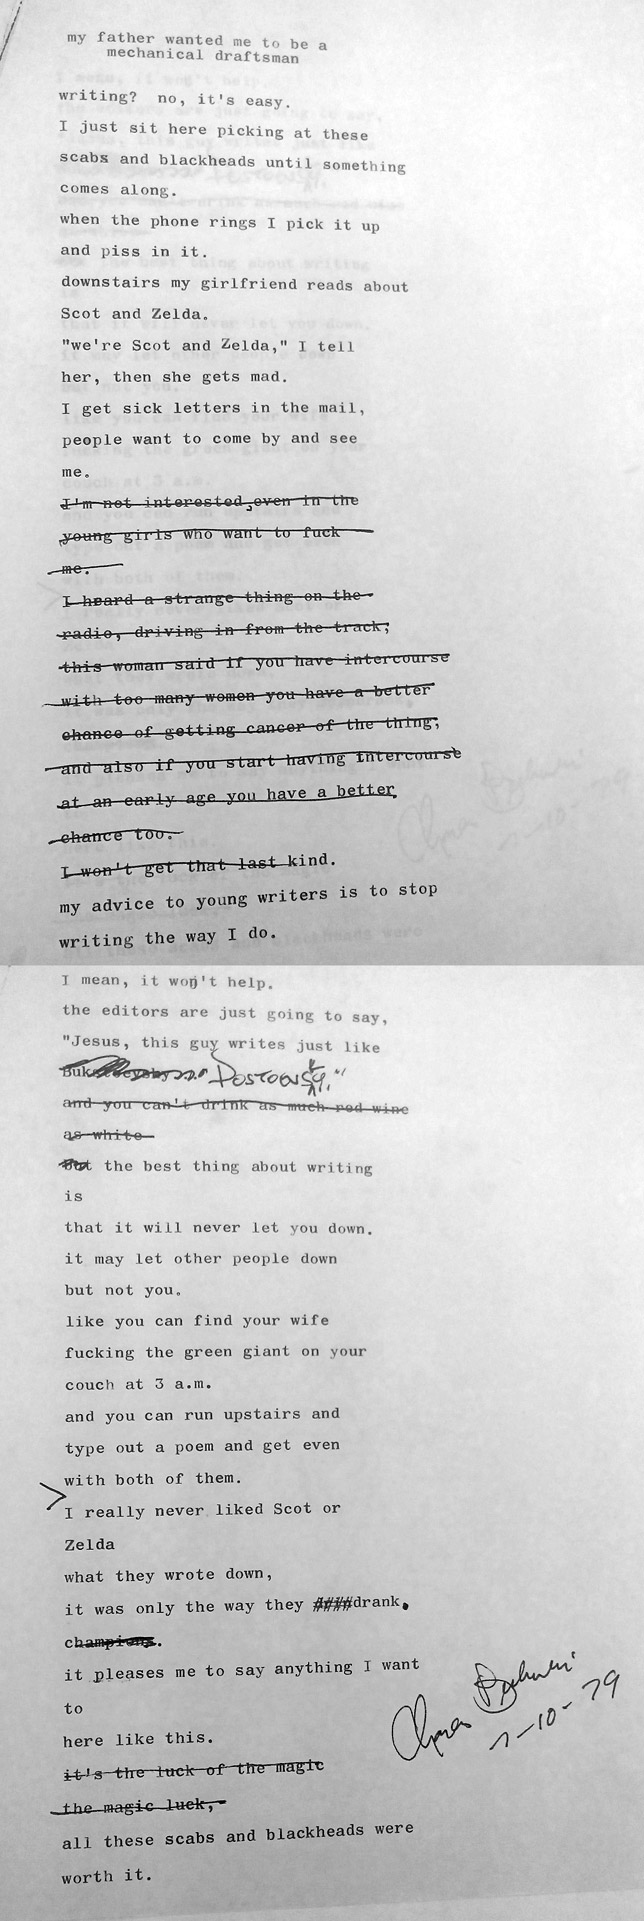 my father wanted me to be a
mechanical draftsman
writing? no, it's easy.
I just sit here picking at these
scabs and blackheads until something
comes along.
when the phone rings I pick it up
and piss in it.
downstairs my girlfriend reads about
Scot and Zelda.
"we're Scot and Zelda," I tell
her, then she gets mad.
I get sick letters in the mail,
people want to come by and see
me.
I'm not interested,even in the
young girls who want to fuck
me.
I heard a strange thing on the
radio, driving in from the track;
this woman said if you have intercourse
with too many women you have a better
chance of getting cancer of the thing;
and also if you start having intercourse
at an early age you have a better
chance too.
I won't get that last kind.
my advice to young writers is to stop
writing the way I do.
I mean, it won't help.
the editors are just going to say,
"Jesus, this guy writes just like
and you can't drink as much red wine
as white
But the best thing about writing
is
that it will never let you down.
it may let other people down
but not you.
like you can find your wife
fucking the green giant on your
couch at 3 a.m.
and you can run upstairs and
type out a poem and get even
with both of them.
I really never liked Scot or
Zelda
what they wrote down,
it was only the way they ####drank.
champions.
it pleases me to say anything I want
to
here like this.
it's the luck of the magic
the magic luck,
all these scabs and blackheads were
worth it.
7-10-79